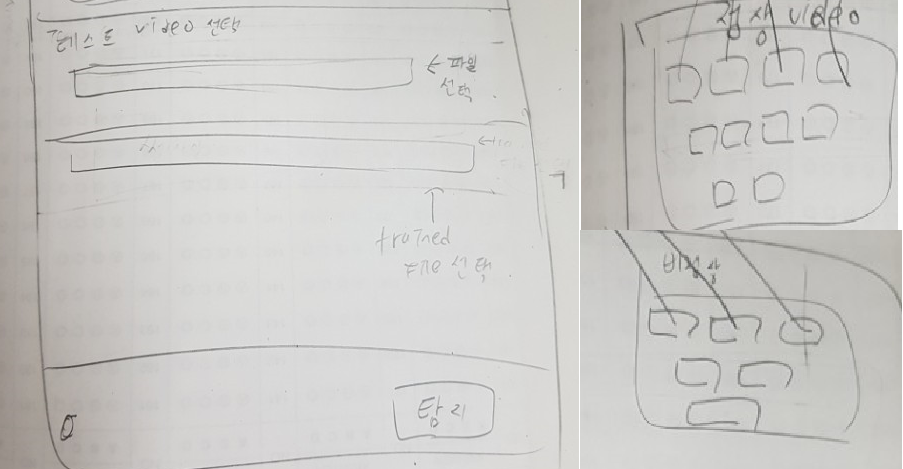 테스트 video 선택
← 파일
선택
trained
File 선택
탐지
정상 video
비정상